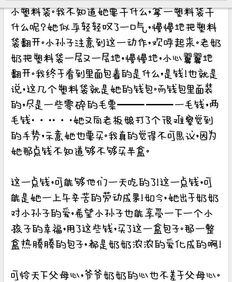 小塑料袋。我不知道她要干什么,拿一塑料袋干
什么呢?她似乎轻轻叹了一口气,慢慢地把塑料
袋翻开。小孙子注意到这一动作,欢呼起来。老奶
奶把塑料袋一层又一层地,慢慢地,小心翼翼地
翻开。我终于看到里面包着的是什么,是钱!也就是
说,这几个塑料袋就是她的钱包。而钱包里面装
的,尽是一些零碎的毛壹——————一毛钱,两
毛钱·····她又向老板娘打了个很难察觉到
的手势,示意她也要买。我真的觉得不可思议,因为
她那点钱不知道够不够买半盒。
这一点钱,可能够他们一天吃的了!这一点钱,可
能是她一上午辛苦的劳动成果!如今,她出于奶奶
对小孙子的爱,希望小孙子也能享受一下一个小
孩子的幸福,用了这些钱,买了这一盒包子,那一整
盒热腾腾的包子,都是奶奶浓浓的爱化成的啊!
可怜天下父母心,爷爷奶奶的心也不差于父母心。